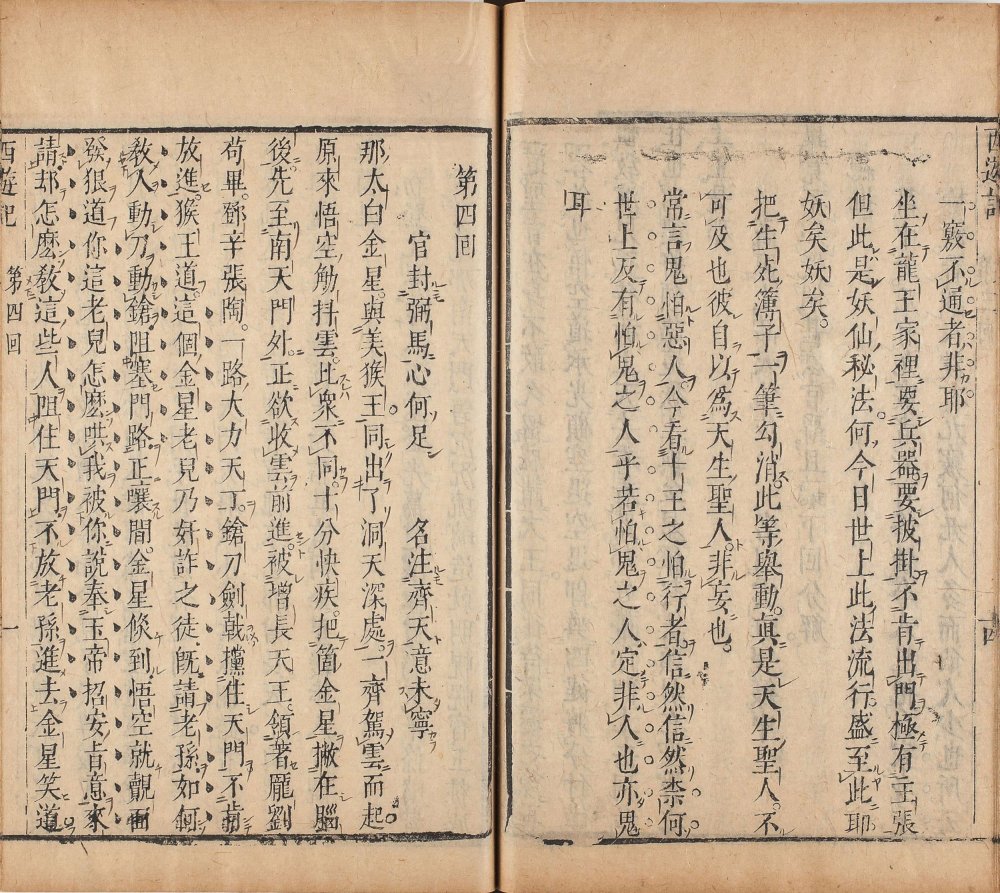 一竅不通者非耶
坐在龍王家裡要兵器要披掛不肯出門極有主張
但此是妖仙秘法何今日世上此法流行盛至此耶
妖矣妖矣
把生死簿子一筆勾消此等舉動真是天生聖人不
可及也彼自以為天生聖人非妄也
常言鬼怕惡人今看十王之怕行者信然信然柰何
世上反有怕鬼之人乎若怕鬼之人定非人也亦鬼
耳
第四回
官封弼馬心何足 名注齊天意未寧
那太白金星與美猴王同出了洞天深處一齊駕雲而起
原來悟空觔抖雲比衆不同十分快疾把箇金星撇在腦
後先至南天門外正欲收雲前進被增長天王領著龐劉
苟畢鄧辛張陶一路大力天丁鎗刀劍戟攩住天門不肯
放進猴王道這個金星老兒乃奸詐之徒既請老孫如何
教人動刀動鎗阻塞門路正嚷間金星倏到悟空就覿面
發狠道你這老兒怎麽哄我被你說奉玉帝招安旨意來
請却怎麽教這些人阻住天門不放老孫進去金星笑道
西遊記 第四回 一